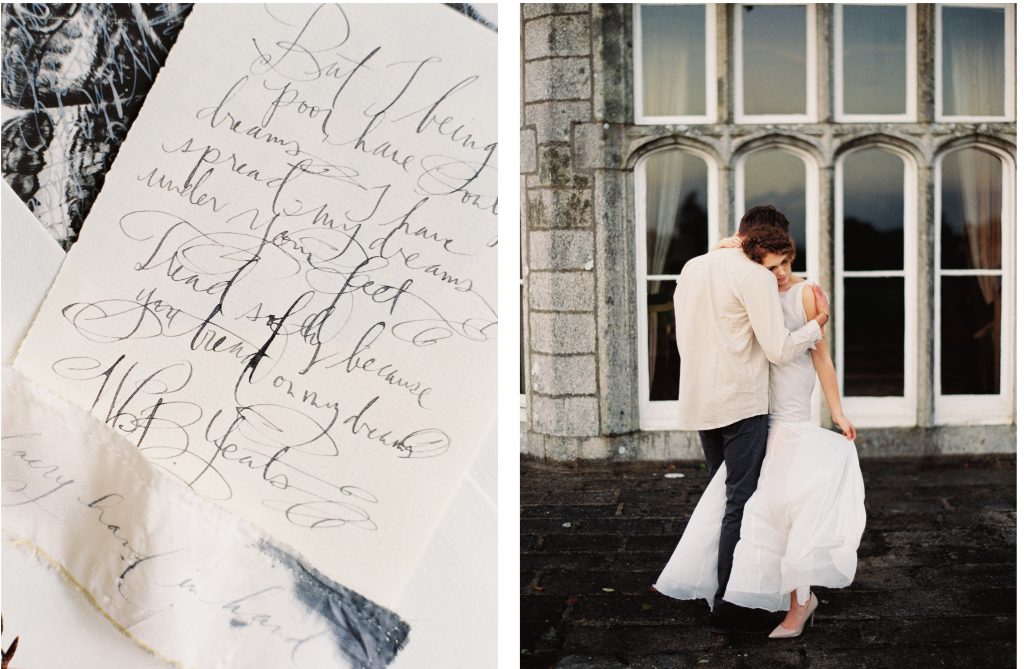 But I being
poor, have only
dreams I have
spread my dreams
under your feet
Tread softly because
you tread on my dreams
W.B. Yeats
hand in hand